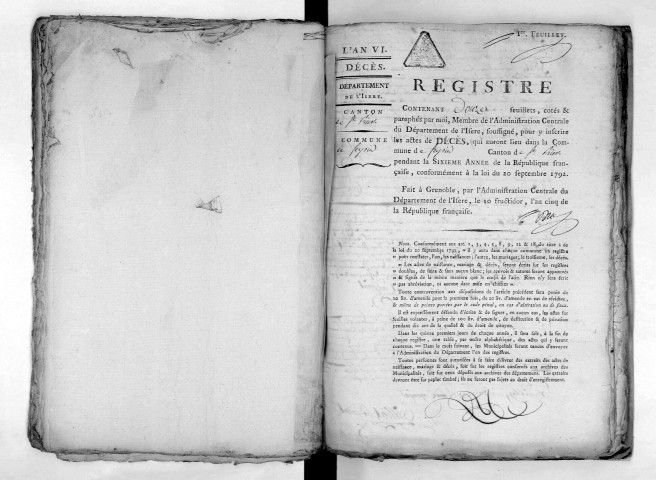 1er. FEUILLET.
L'AN VI.
DÉCÈS.
DÉPARTEMENT
DE L'ISERE.
CANTON
COMMUNE
REGISTRE
CONTENANT Douze feuillets, cotés &
paraphés par moi, Membre de l'Administration Centrale
du Département de l'Isere, soussigné, pour y inscrire
les actes de DÉCÈS, qui auront lieu dans la Com-
mune de Canton de
pendant la SIXIEME ANNÉE de la République fran-
çaise, conformément à la loi du 20 septembre 1792.
Fait à Grenoble, par l'Administration Centrale du
Département de l'Isere, le 20 fructidor, l'an cinq de
la République française.
NOTA. Conformément aux art. 1, 2, 4, 5, 8, 9, 12 & 18 du titre 2 de
la loi du 20 septembre 1792, « il y aura dans chaque commune un registre
pour constater, l'un, les naissances; l'autre, les mariages; le troisieme, les décès.
« Les actes de naissance, mariage & décès, seront écrits sur les registres
doubles, de suite & sans aucun blanc; les renvois & ratures seront approuvés
& signés de la même maniere que le corps de l'acte. Rien n'y sera écrit
par abréviation, ni aucune date mise en chiffres.
Toute contravention aux dispositions de l'article précédent sera punie de
10 liv. d'amende pour la premiere fois, de 20 liv. d'amende en cas de récidive,
& même de peines portées par le code pénal, en cas d'altération ou de faux.
Il est expressément défendu d'écrire & de signer, en aucun cas, les actes sur
feuilles volantes, à peine de 100 liv. d'amende, de destitution & de privation
pendant dix ans de la qualité & du droit de citoyen.
Dans les quinze premiers jours de chaque année, il sera fait, à la fin de
chaque registre, une table, par ordre alphabétique, des actes qui y seront
contenus. — Dans le mois suivant, les Municipalités seront tenues d'envoyer
à l'Administration du Département l'un des registres.
Toutes personnes sont autorisées à se faire délivrer des extraits des actes de
naissance, mariage & décès, soit sur les registres conservés aux archives des
Municipalités, soit sur ceux déposés aux archives des départemens. Les extraits
devront être sur papier timbré; ils ne seront pas sujets au droit d'enregistrement.